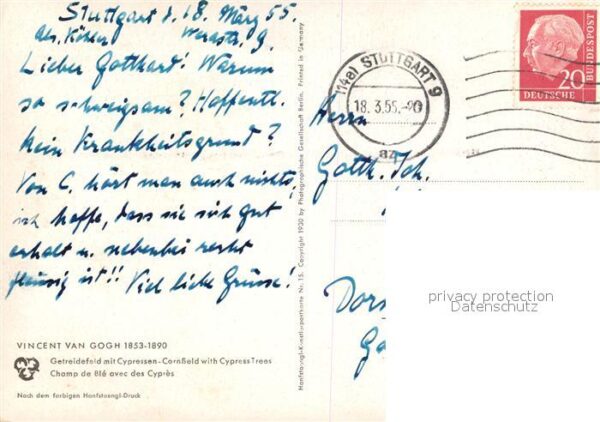 Stuttgart d. 18. März 55.
Werastr. 9.
Lieber Gotthard! Warum
so schweigsam? Hoffentl.
kein Krankheitsgrund?
Von C. hört man auch nichts,
ich hoffe, dass sie sich gut
erholt u. nebenbei recht
fleissig ist!! Viel liebe Grüsse!
VINCENT VAN GOGH 1853-1890
Getreidefeld mit Cypressen - Cornfield with Cypress Trees
Champ de Blé avec des Cyprès
Nach dem farbigen Hanfstaengl-Druck
Hanfstaengl-Künstlerpostkarte Nr. 15. Copyright 1930 by Photographische Gesellschaft Berlin. Printed in Germany
(14a) STUTTGART 9
18.3.55.-20
az
20
DEUTSCHE
BUNDESPOST
Herrn
Gotth. Joh.
Dors
privacy protection
Datenschutz